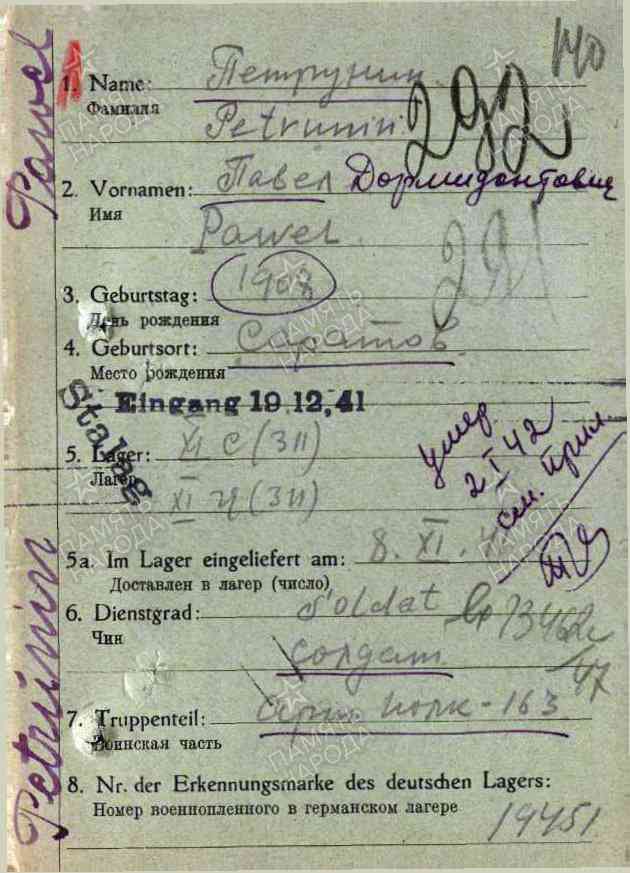 Pawel
Petrunin
140
1. Name: Петрунин
Фамилия
Petrunin
292
2. Vornamen: Павел Дормидонтович
Имя
Pawel
291
3. Geburtstag: 1908
День рождения
4. Geburtsort: Саратов
Место рождения
Eingang 19.12.41
Stalag
5. Lager: XI C (311)
Лагерь
XI Ц (311)
умер
2 I 42
см. прил.
5a. Im Lager eingeliefert am: 8. XI. 41
Доставлен в лагерь (число)
6. Dienstgrad: Soldat
Чин
солдат
7. Truppenteil: полк - 163
Воинская часть
8. Nr. der Erkennungsmarke des deutschen Lagers:
Номер военнопленного в германском лагере
19451
ПАМЯТЬ НАРОДА